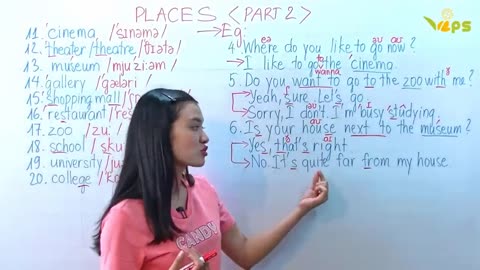 PLACES <PART 2>
11. cinema /ˈsɪnəmə/
12. theater/theatre/ˈθɪətə/
13. museum /mjuˈziːəm/
14. gallery /ˈɡæləri/
15. shopping mall
16. restaurant
17. ZOO /zuː/
18. school /sku
19. university /ju
20. college /k
→ Eg:
4. Where do you like to go now?
→ I like to go to the cinema.
5. Do you want to go to the zoo with me?
wanna
Yeah, sure. Let's go.
Sorry, I don't. I'm busy studying.
6. Is your house next to the museum?
Yes, that's right.
No. It's quite far from my house
VOPS